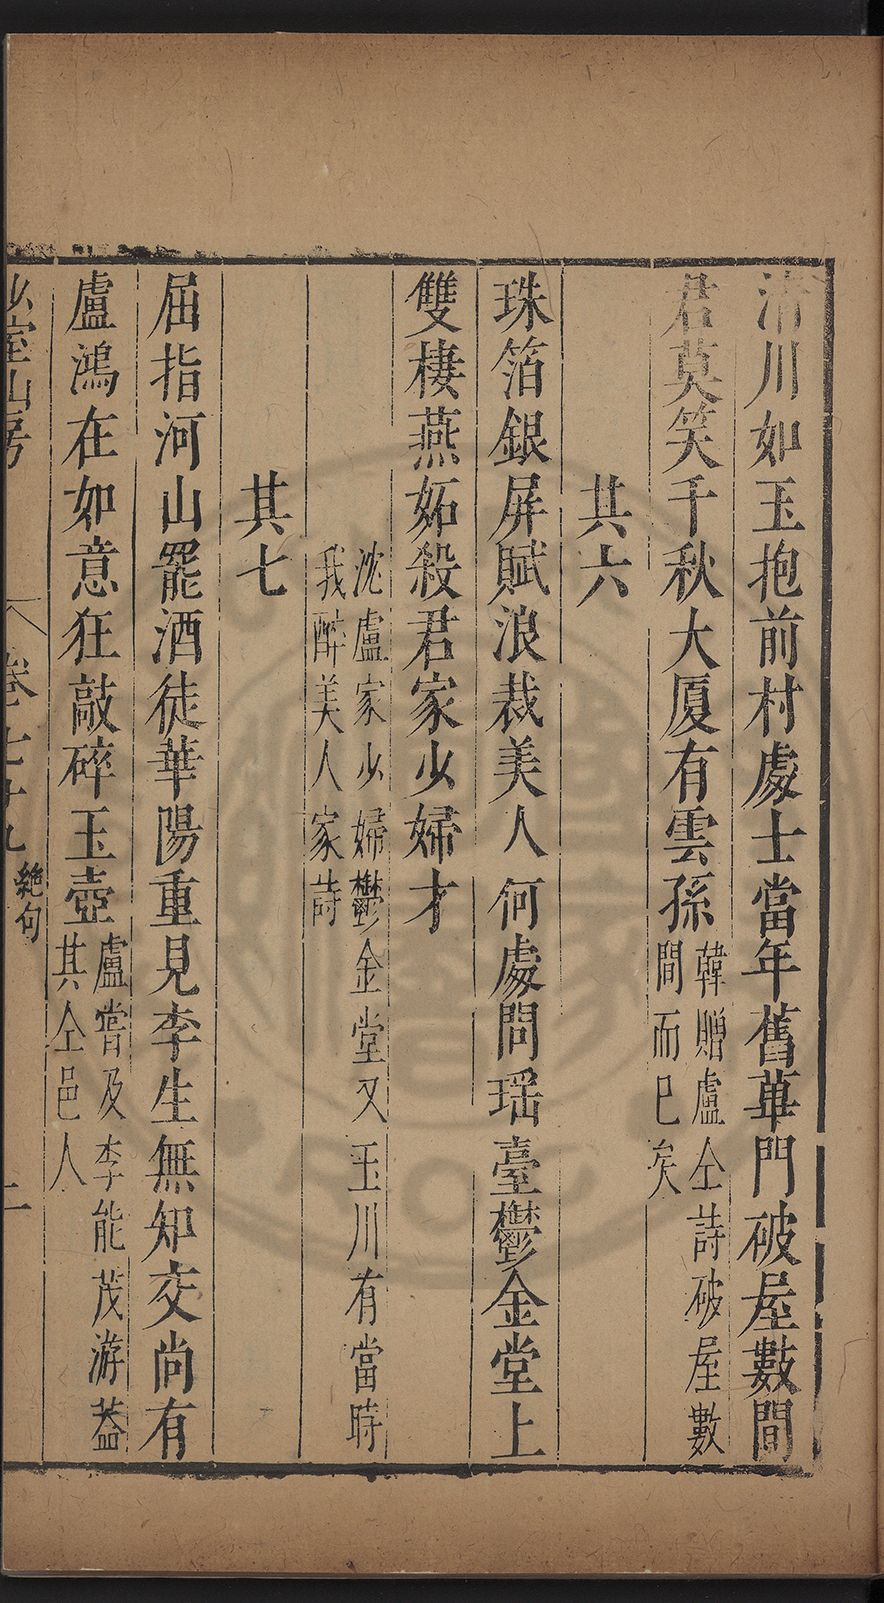 清川如玉抱前村處士當年舊蓽門破屋數間
君莫笑千秋大厦有雲孫韓贈盧仝詩破屋數
間而已矣
其六
珠箔銀屏賦浪裁美人何處問瑶臺鬱金堂上
雙棲燕妬殺君家少婦才
沈盧家少婦鬱金堂又玉川有當時
我醉美人家詩
其七
屈指河山罷酒徒華陽重見李生無知交尚有
盧鴻在如意狂敲碎玉壺盧嘗及李能茂游葢
其仝邑人
少室山房
卷七十九
絶句
二